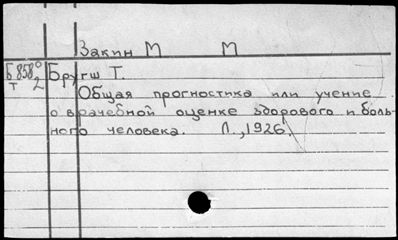 Закин М М
Б 858⁰ Бругш Т.
т 2
Общая прогностика или учение
о врачебной оценке здорового и боль-
ного человека. Л., 1926.